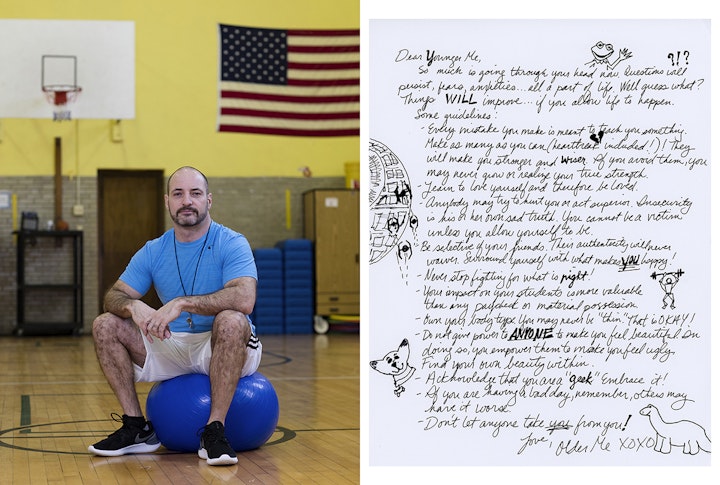 Dear Younger Me,
?!?
So much is going through your head now. Questions will
persist, fears, anxieties... all a part of life. Well guess what?
Things WILL improve... if you allow life to happen.
Some guidelines:
- Every mistake you make is meant to teach you something.
Make as many as you can (heartbreak included!)! They
will make you stronger and wiser. If you avoid them, you
may never grow or realize your true strength.
- Learn to love yourself and therefore be loved.
- Anybody may try to hurt you or act superior. Insecurity
is his or her own sad truth. You cannot be a victim
unless you allow yourself to be.
- Be selective of your friends. Their authenticity will never
waiver. Surround yourself with what makes YOU happy!
- Never stop fighting for what is right!
- Your impact on your students is more valuable
than any paycheck or material possession
- Own your body type. You may never be "thin". That is OKAY!
- Do not give power to ANYONE to make you feel beautiful. In
doing so, you empower them to make you feel ugly.
Find your own beauty within.
- Acknowledge that you are a "geek". Embrace it!
- If you are having a bad day, remember, others may
have it worse.
- Don't let anyone take you from you!
Love, Older Me XOXO